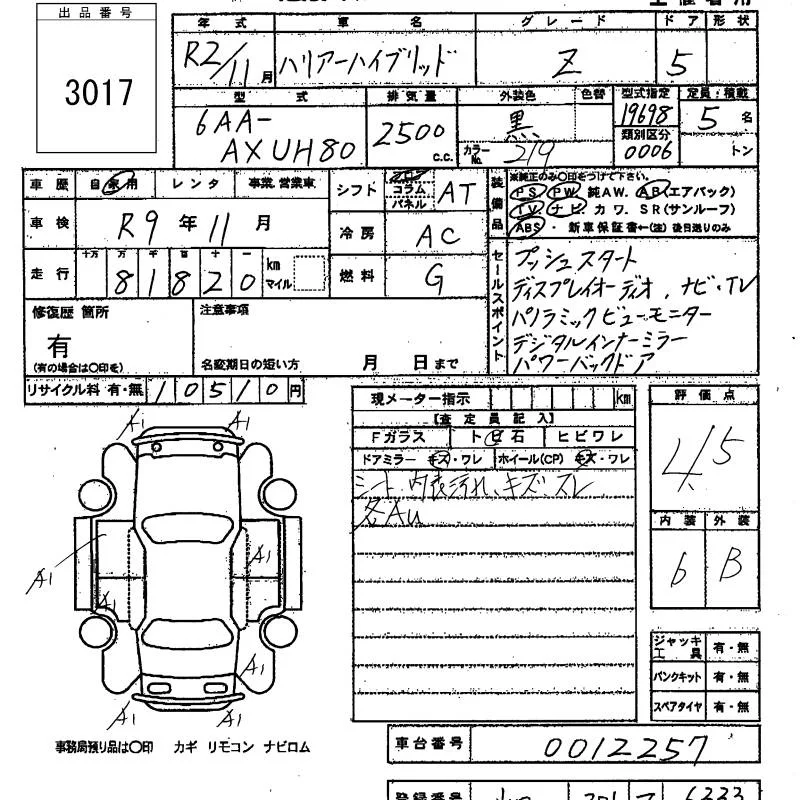 出品番号
3017
年式 車名 グレード ドア 形状
R2/11月 ハリアーハイブリッド Z 5
型式 排気量 外装色 色替 型式指定 定員:積載
6AA-AXUH80 2500 c.c. 黒 19698 5名
カラーNo. 219 類別区分 0006 トン
車歴 自家用 レンタ 事業.営業車
シフト フロア コラム パネル AT
装備品 ※純正のみ〇印をつけて下さい。
PS PW 純AW. AB(エアバック)
TV. ナビ. カワ. SR(サンルーフ)
ABS・新車保証書←(注)後日送りのみ
車検 R9年11月
冷房 AC
走行 十万 万 千 百 十 一 km マイル
81820
燃料 G
セールスポイント
プッシュスタート
ディスプレイオーディオ.ナビ・TV
パノラミックビューモニター
デジタルインナーミラー
パワーバックドア
修復歴 箇所
有
(有の場合は〇印を)
注意事項
名変期日の短い方 月 日まで
リサイクル料 有・無 10510円
現メーター指示 km
【査定員記入】
Fガラス ト ビ 石 ヒビワレ
ドアミラー キズ・ワレ ホイール(CP) キズ・ワレ
シート、内装汚れ、キズ・スレ
各Au
評価点
4.5
内装 外装
6 B
A1 A1
A1
A1
A1
A1
A1 A1
ジャッキ工具 有・無
パンクキット 有・無
スペアタイヤ 有・無
事務局預り品は〇印 カギ リモコン ナビロム
車台番号 0012257
登録番号